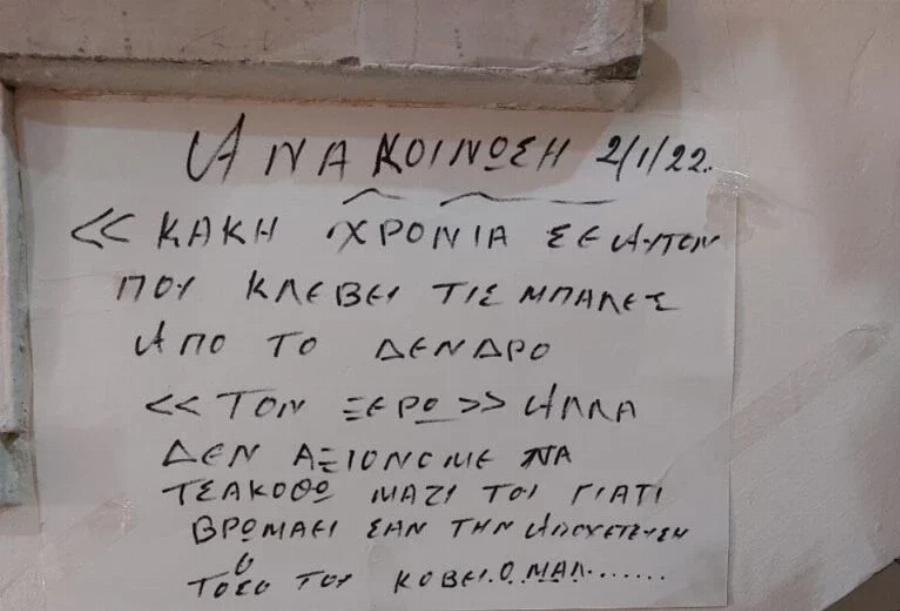 ΑΝΑΚΟΙΝΩΣΗ 2/1/22.
<< ΚΑΚΗ ΧΡΟΝΙΑ ΣΕ ΑΥΤΟΝ
ΠΟΥ ΚΛΕΒΕΙ ΤΙΣ ΜΠΑΛΕΣ
ΑΠΟ ΤΟ ΔΕΝΔΡΟ
<< ΤΟΝ ΞΕΡΩ >> ΑΛΛΑ
ΔΕΝ ΑΞΙΟΝΟΜΕ ΝΑ
ΤΣΑΚΟΘΩ ΜΑΖΙ ΤΟΥ ΓΙΑΤΙ
ΒΡΩΜΑΕΙ ΣΑΝ ΤΗΝ ΑΠΟΧΕΤΕΥΣΗ
ΤΟΣΟ ΤΟΥ ΚΟΒΕΙ.Ο ΜΑΛ.......